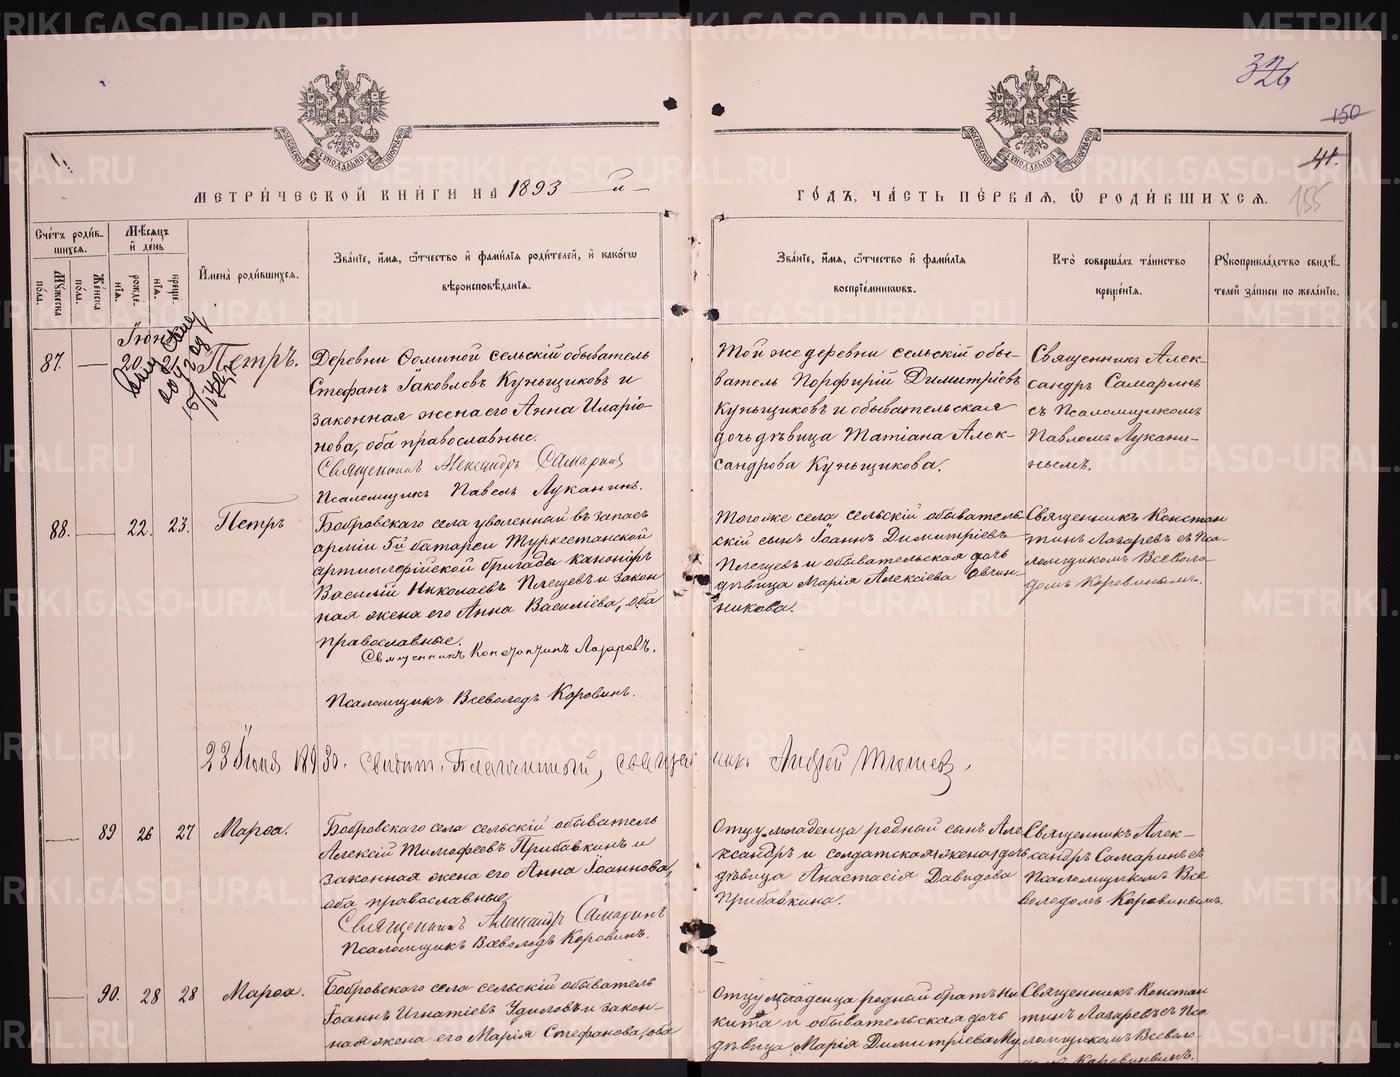 METRIKI.GASO-URAL.RU
32
26
150
41.
155
МЕТРИ́ЧЕСКОЙ КНИ́ГИ НА 1893 й
ГО́ДЪ, ЧА́СТЬ ПЕ́РВАЯ, Ѽ РОДИ́ВШИХСЯ.
Сче́тъ роди́в-
шихся.
Мѣ́сяцъ
и҆ де́нь
Мꙋ́жеска по́ла.
Же́нска по́ла.
рожде́-нїя.
креще́-нїя.
И҆мена̀ роди́вшихся.
Зва́нїе, и҆́мя, ѻ҆́тчество и҆ фами́лїя роди́телей, и҆ како́гѡ
вѣроисповѣ́данїя.
Зва́нїе, и҆́мя, ѻ҆́тчество и҆ фами́лїя
воспрїе́мниковъ.
Кто̀ соверша́лъ та́инство
креще́нїя.
Рꙋкоприкла́дство свидѣ́-
телей за́писи по жела́нїю.
Іюнь
87. — 20. 25 Петръ.
Деревни Ѳоминой сельскій обыватель
Стефанъ Іаковлевъ Куньщиковъ и
законная жена его Анна Иларіо-
нова, оба православные.
Священникъ Александръ Самаринъ
Псаломщикъ Павелъ Луканинъ.
Той же деревни сельскій обы-
ватель Порфирій Димитріевъ
Куньщиковъ и обывательская
дочь дѣвица Татіана Алек-
сандрова Куньщикова.
Священникъ Алек-
сандръ Самаринъ
съ Псаломщикомъ
Павломъ Лукани-
нымъ.
88. — 22. 23. Петръ
Бобровскаго села уволенный въ запасъ
арміи 5й батареи Туркестанской
артиллерійской бригады канониръ
Василій Николаевъ Плещевъ и закон
ная жена его Анна Василіева, оба
православные.
Священникъ Константинъ Лазаревъ.
Псаломщикъ Всеволодъ Коровинъ.
Тогоже села сельскій обыватель-
скій сынъ Іоаннъ Димитріевъ
Плещевъ и обывательская дочь
дѣвица Марія Алексіева Овчин-
никова.
Священникъ Констан
тинъ Лазаревъ съ Пса-
ломщикомъ Всеволо-
домъ Коровинымъ.
23 Іюня 1893 г. свидѣт. Благочинный, священникъ Андрей
— 89 26 27 Марѳа.
Бобровскаго села сельскій обыватель
Алексій Тимофеевъ Прибавкинъ и
законная жена его Анна Іоаннова,
оба православные
Священникъ Александръ Самаринъ
Псаломщикъ Всеволодъ Коровинъ.
Отцу младенца родный сынъ Але
ксандръ и солдатская жена дочь
дѣвица Анастасія Давидова
Прибавкина.
Священникъ Алек-
сандръ Самаринъ съ
Псаломщикомъ Все
володомъ Коровинымъ.
— 90. 28 28 Марѳа.
Бобровскаго села сельскій обыватель
Іоаннъ Игнатіевъ Удиловъ и закон-
ная жена его Марія Стефанова, оба
Отцу младенца родный братъ Ни
кита и обывательская дочь
дѣвица Марія Димитріева Му
Священникъ Констан
тинъ Лазаревъ съ Пса
ломщикомъ Всеволо-
домъ Коровинымъ.